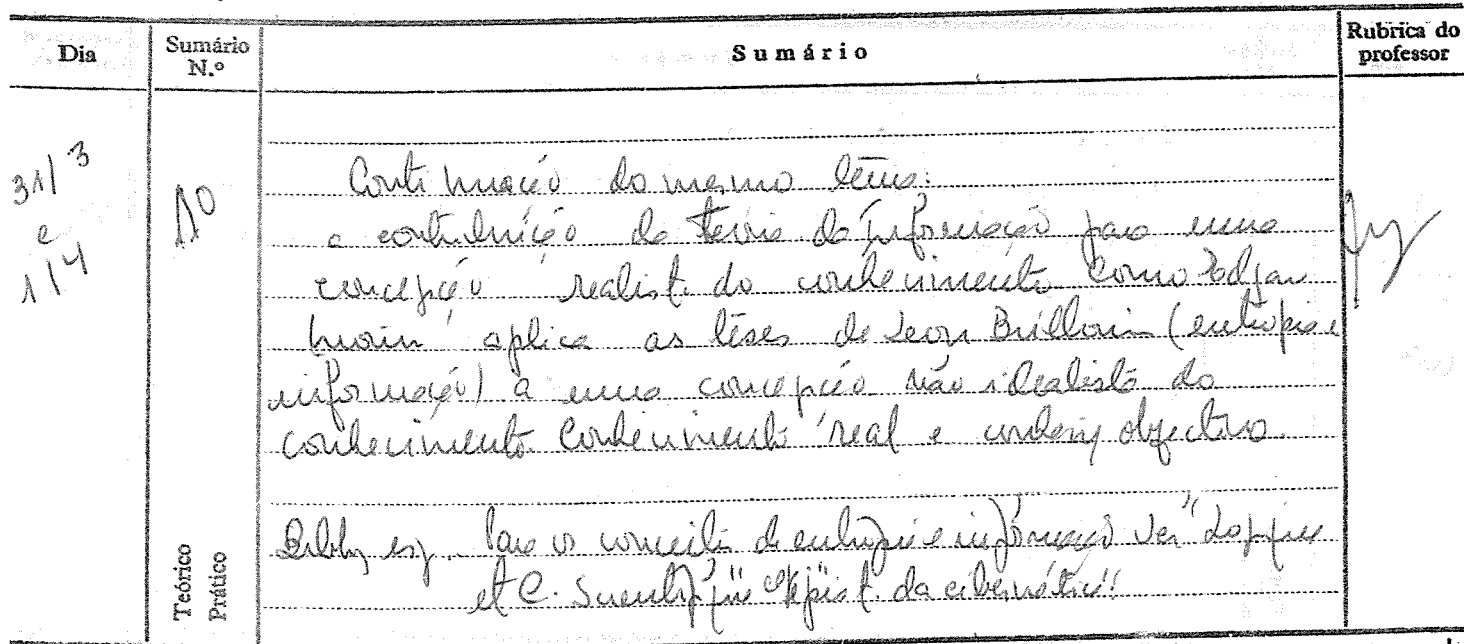 Dia
Sumário N.º
Sumário
Rubrica do professor
31/3 e 1/4
10
Continuação do mesmo tema:
a contribuição da teoria da Informação para uma
concepção realista do conhecimento. Como Edgar
Morin aplica as teses de Leon Brillouin (entropia e
informação) a uma concepção não idealista do
conhecimento. Conhecimento real e conhecim objectivo.
Para os conceitos de entropia e informação ver "Logique
et C. Scientifique" "Epist. da cibernética"
Teórico
Prático